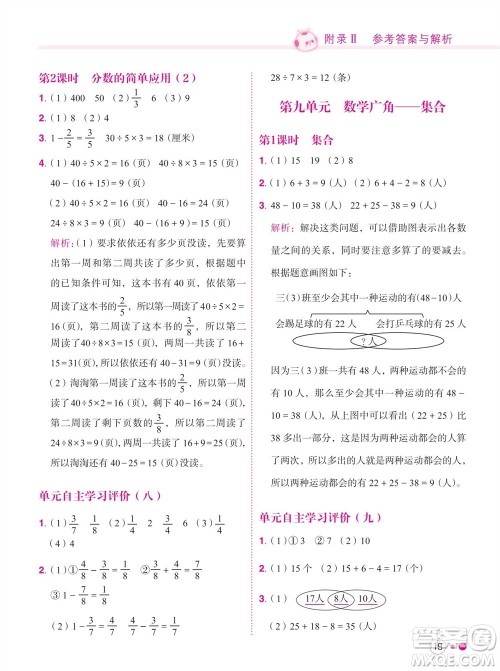 附录Ⅱ 参考答案与解析
第2课时 分数的简单应用（2）
1. （1）400 50 （2）6 （3）9
2. （1）8 （2）4
3. 1－2/5＝3/5 30÷5×3＝18（厘米）
4. 40÷5×2＝16（页） 40÷8×3＝15（页）
40－（16＋15）＝9（页）
40÷5×2＝16（页） 40－16＝24（页）
24÷8×3＝9（页） 40－（16＋9）＝15（页）
解析：（1）要求依依还有多少页没读，需要
算出第一周和第二周共读了多少页。根据题目中
的已知条件可知，这本书有 40 页，依依第一
周读了这本书的2/5，第二周读了这本书的3/8，所
以第一周读了 40÷5×2＝16（页），第二周读了
40÷8×3＝15（页），所以第一周和第二周共读了
16＋15＝31（页），还有 40－31＝9（页）没读。
（2）淘淘第一周读了这本书的2/5，所以第一
周读了 40÷5×2＝16（页），还剩 40－16＝24
（页）。淘淘第二周读了剩下页数的3/8，所以第二周
读了 24÷8×3＝9（页）。两周共读了 16＋9＝25
（页），还有 40－25＝15（页）没读。
单元自主学习评价（八）
1. （1）3/7 1/8 （2）1/4 3/4 （3）1/4 2
（4）4
2. （1）①4/8－3/8＝1/8 ②4/8＋3/8＝7/8
③1－7/8＝1/8
（2）28÷7＝4（条） 28÷7×2＝8（条）
28÷7×3＝12（条）
第九单元 数学广角——集合
第1课时 集合
1. （1）15 19 （2）8
2. （1）6＋3＝9（人） （2）8＋3＝11（人）
3. 48－10＝38（人） 22＋25－38＝9（人）
解析：解决这类问题，可以借助图表示出各
数量之间的关系，同时要注意多算了的要减去。
根据题意画图如下：
三（3）班至少会其中一种运动的有（48－10）人
会踢足球的有 22 人 会打乒乓球的有 25 人
两种运动都会的有？人
因为三（3）班至少会其中一种运动的有 48－
10＝38（人），所以会踢足球的人数与会打乒乓
球的人数之和减去两种运动都会的人数等于 38
人。两次相加，两种运动都会的人数多加了一
次，所以两种运动都会的有（22＋25）－（48－
10）＝22＋25－38＝9（人）。
单元自主学习评价（九）
1. （1）①3 ②3 （2）29
2. （1）15 个 （2）15＋6－4＝17（个）
3. （1） 17人 8人 10人
（2）①17－8＝9（人）